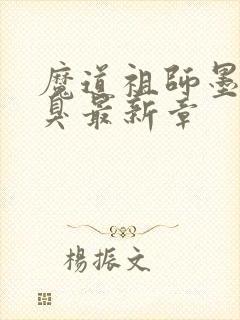 魔道祖師墨
臭最新章
楊振文